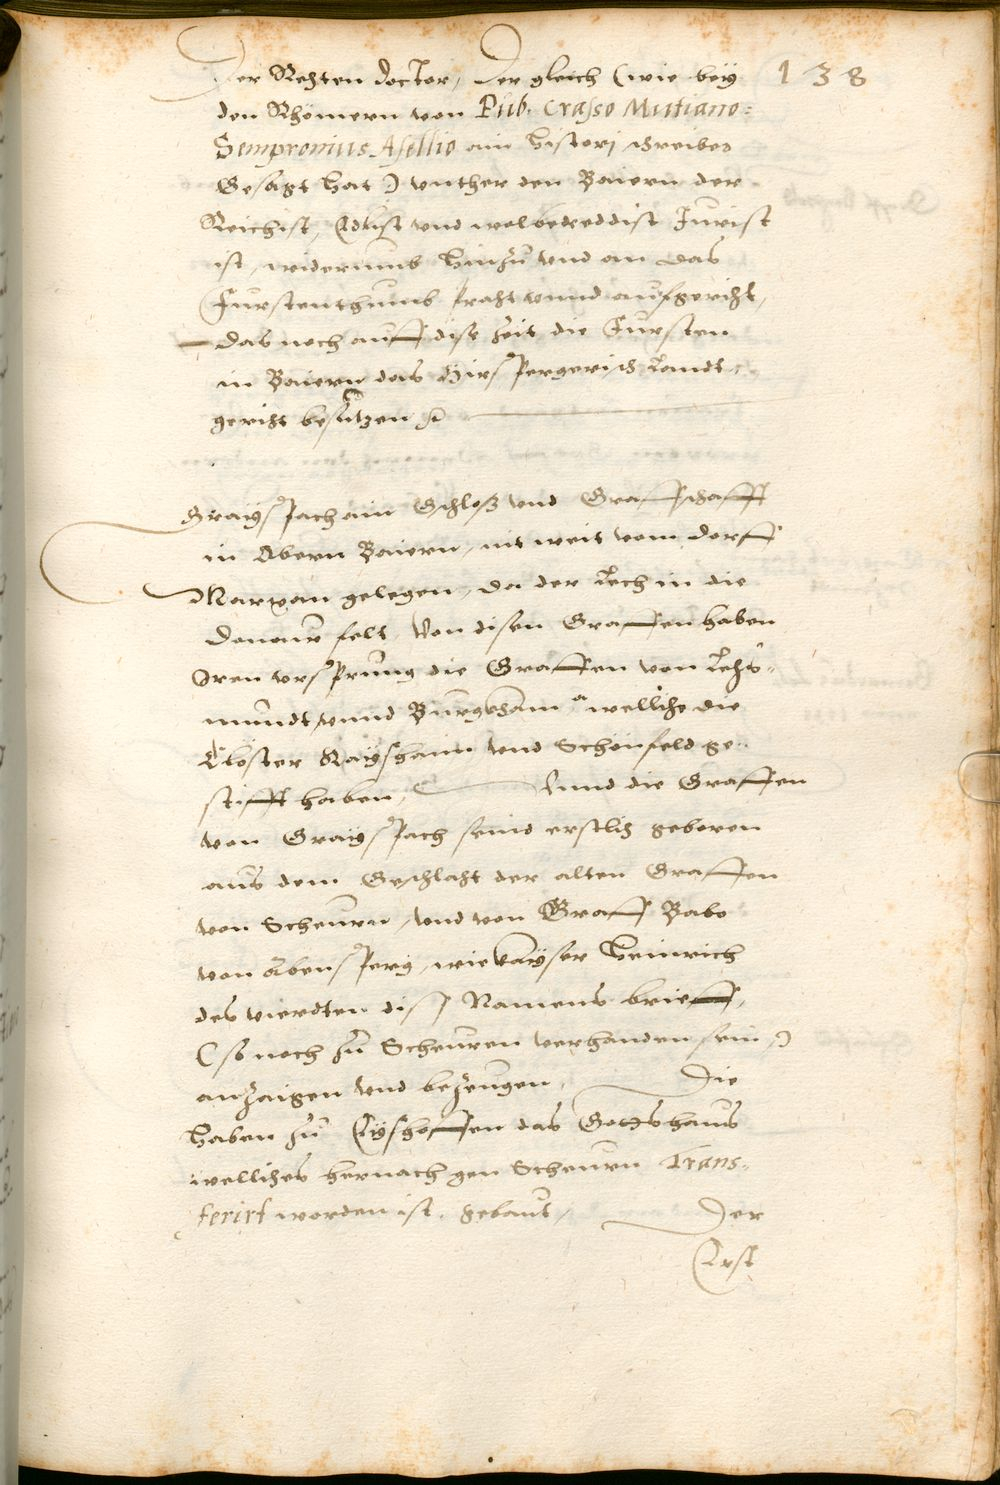 Der Rehten doctor, Der gleich (wie bey 138
den Rhömern von Pub. Crasso Mutiano
Sempronius Asellio ain histori schreiber
Gesagt hat) vnther den Baiern der
Reichist, Edlist vnd wolbereddist Jurist
ist, widerumb hinzu vnd an das
Furstenthumb praht vnnd aufgericht,
das noch auff dise zeit die Fursten
in Baiern das Hirspergerisch Landt
gericht besitzen
Grayspach ain Schloß vnd Graffschafft
in Obern Baiern, nit weit vom dorff
Marxan gelegen, da der Lech in die
Donaw felt, Von disen Graffen haben
Iren vrsprung die Graffen von Lechs-
mundt, vnnd Burgkhaim, wellche die
Clöster Kayshaim vnd Schönfeld ge-
stifft haben, Vnnd die Graffen
von Grayspach seind erstlich geboren
aus dem Geschlaht der alten Graffen
von Scheurn, vnd von Graff Babo
von Abensperg, wie Kayser Heinrich
des vierdten diss Namens brieff,
(so noch zu Scheuren verhanden sein)
anzaigen vnd bezeugen, Die
haben zu Eyshoffen das Gottshaus
welliches hernach gen Scheurn Trans-
ferirt worden ist, gebaut, Der
Erst